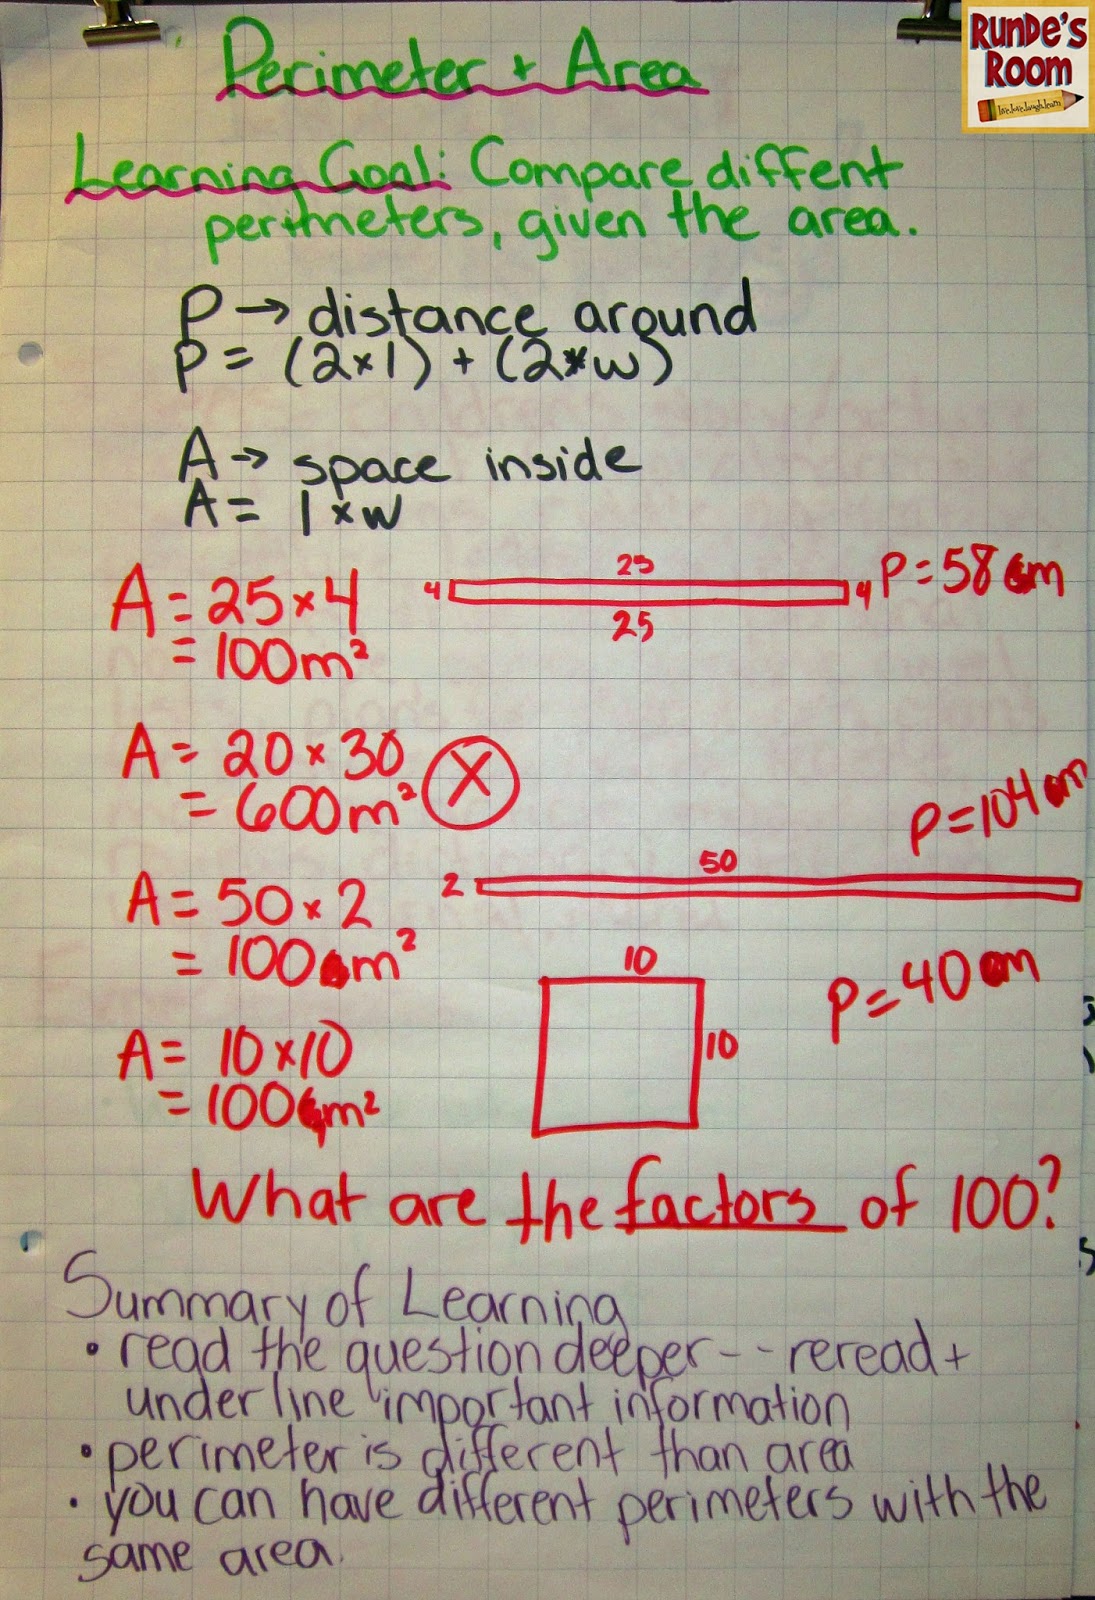 RUNDE'S
ROOM
live.love.laugh.learn
Perimeter + Area
Learning Goal: Compare diffent
perimeters, given the area.
P → distance around
P = (2×l) + (2×w)
A → space inside
A = l×w
A = 25×4
= 100m²
25
4
4
25
P=58m
A = 20×30
= 600m²
X
A = 50×2
= 100m²
2
50
P=104m
A = 10×10
= 100m²
10
10
P=40m
What are the factors of 100?
Summary of Learning
• read the question deeper -- reread +
underline important information
• perimeter is different than area
• you can have different perimeters with the
same area.